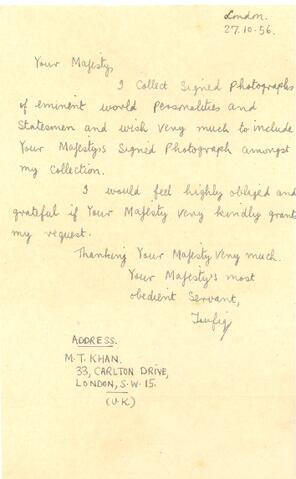 London.
27.10.56.
Your Majesty,
I collect Signed Photographs
of eminent world Personalities and
Statesmen and wish very much to include
Your Majesty's Signed Photograph amongst
my collection.
I would feel highly obliged and
grateful if Your Majesty very kindly grants
my request.
Thanking Your Majesty very much.
Your Majesty's most
obedient Servant,
Taufiq
ADDRESS.
M.T. KHAN.
33, CARLTON DRIVE,
LONDON, S.W. 15.
(U.K.)